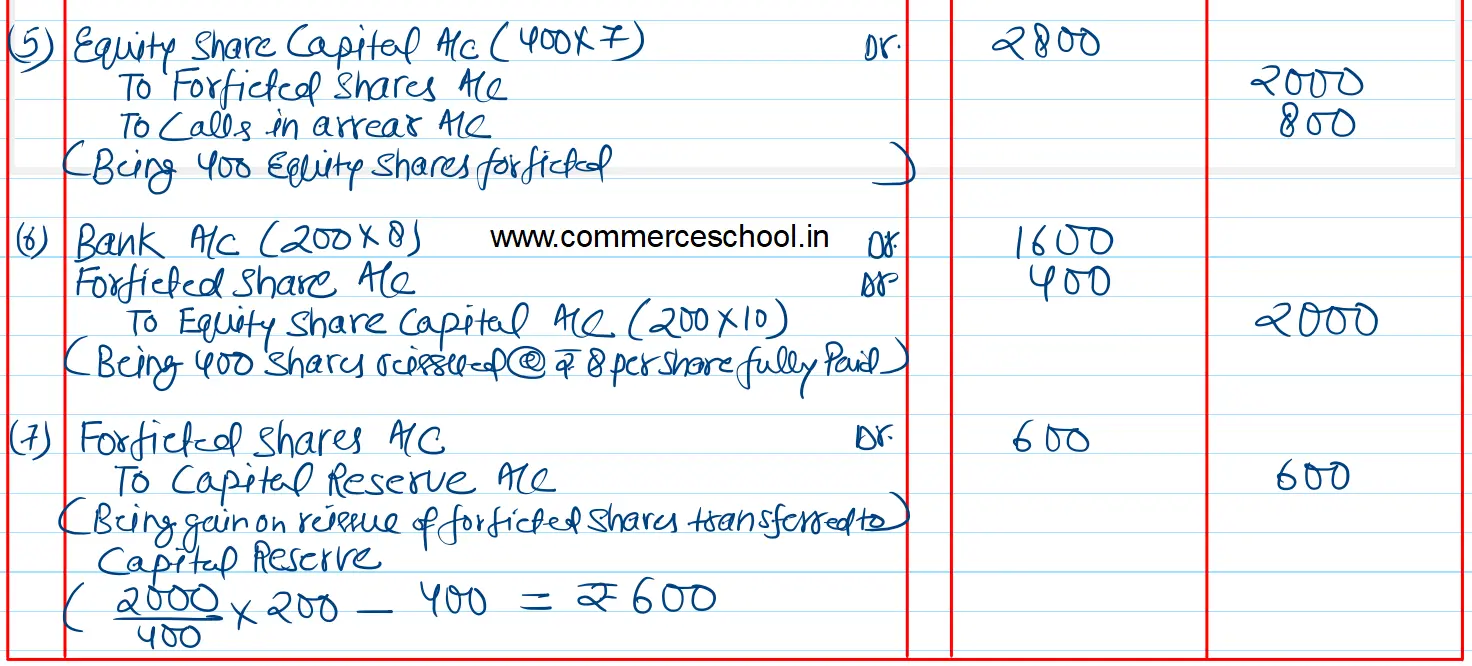 (5) Equity Share Capital A/c (400X7) Dr. 2800
To Forficted Shares A/c 2000
To Calls in arrear A/c 800
(Being 400 Equity Shares forficted )
(6) Bank A/c (200X8) www.commerceschool.in Dr. 1600
Forficted Share A/c Dr 400
To Equity Share Capital A/c (200X10) 2000
(Being 400 Shares reissued @ ₹ 8 per share fully Paid)
(7) Forficted Shares A/C Dr. 600
To Capital Reserve A/c 600
(Being gain on reissue of forficted Shares transferred to)
Capital Reserve
( 2000/400 X 200 - 400 = ₹ 600